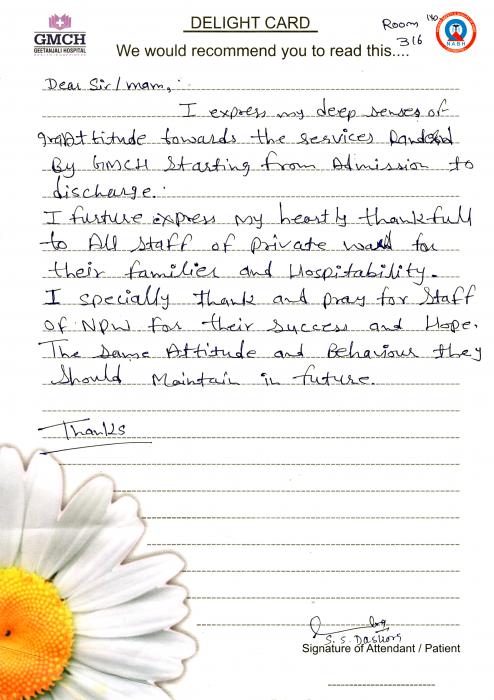 GMCH
GEETANJALI HOSPITAL
DELIGHT CARD
Room
316
NABH
We would recommend you to read this....
Dear Sir/mam,:
I express my deep senses of
grattitude towards the services
By GMCH Starting from Admission to
discharge.:
I furture express my heartly thankfull
to All staff of private ward for
their families and Hospitability.
I specially thank and pray for staff
of NPW for their success and Hope.
The same Attitude and Behaviour they
should maintain in future.
Thanks
S. S. Dashora
Signature of Attendant / Patient